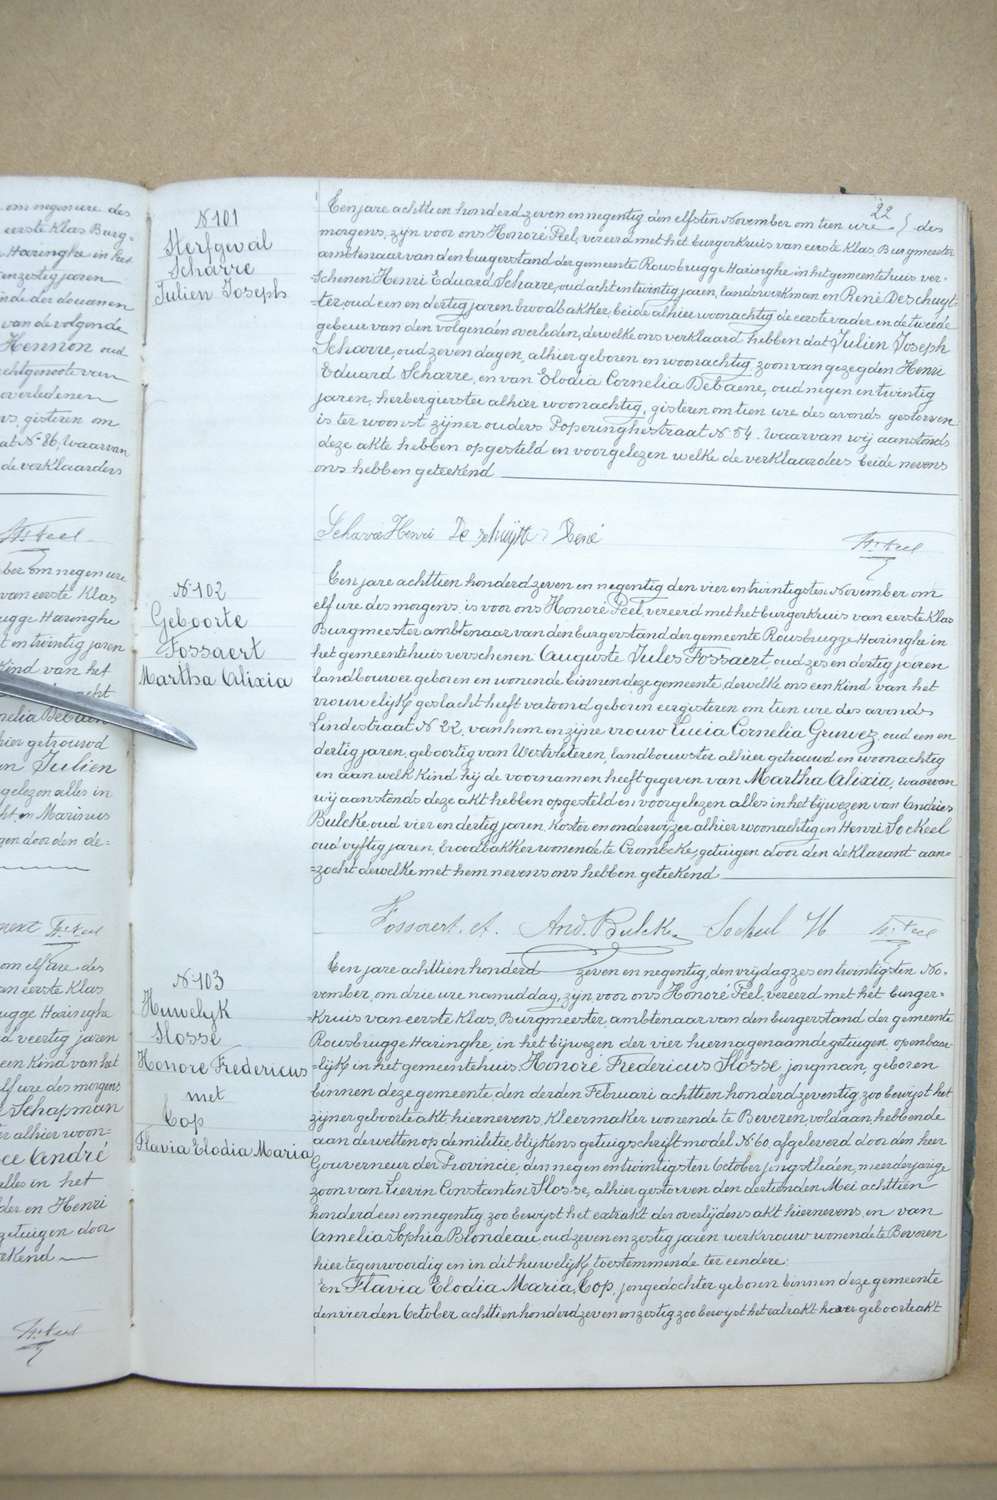 om negen ure des
eerste Klas Burg-
Haringhe in het
en zestig jaren
der douanen
van de volgende
Hennon oud
echtgenoote van
overledenen
gisteren om
at N° 86. Waarvan
de verklaarders
H. Peel
ber om negen ure
van eerste Klas
ugge Haringhe
t en twintig jaren
Kind van het
acht
hier getrouwd
Julien
gelezen alles in
en Marinus
gen door den de-
H. Peel
om elf ure des
van eerste Klas
ugge Haringhe
d veertig jaren
een Kind van het
elf ure des morgens
Schapman
er alhier woon-
André
alles in het
der en Henri
getuigen door
ekend
H. Peel
22
N° 101
Sterfgeval
Scharre
Julien Joseph
Een jare achttien honderd zeven en negentig den elfsten November om tien ure des
morgens, zijn voor ons Honoré Peel, vereerd met het burgerkruis van eerste Klas Burgmeester
ambtenaar van den burgerstand der gemeente Rousbrugge Haringhe in het gemeentehuis ver-
schenen Henri Eduard Scharre, oud acht en twintig jaren, landswerkman en René Deschuyt-
ter oud een en dertig jaren broodbakker, beide alhier woonachtig de eerste vader en de tweede
gebuur van den volgenden overleden, dewelke ons verklaard hebben dat Julien Joseph
Scharre, oud zeven dagen, alhier geboren en woonachtig, zoon van gezegden Henri
Eduard Scharre, en van Elodia Cornelia DeBaene, oud negen en twintig
jaren, herbergierster alhier woonachtig, gisteren om tien ure des avonds gestorven
is ter woonst zijner ouders Poperinghestraat N° 54. Waarvan wij aanstonds
deze akte hebben opgesteld en voorgelezen welke de verklaarders beide nevens
ons hebben geteekend
Scharre Henri De schuytter René H. Peel
N° 102
Geboorte
Fossaert
Martha Alixia
Een jare achttien honderd zeven en negentig den vier en twintigsten November om
elf ure des morgens, is voor ons Honoré Peel, vereerd met het burgerkruis van eerste Klas
Burgmeester ambtenaar van den burgerstand der gemeente Rousbrugge Haringhe in
het gemeentehuis verschenen Auguste Jules Fossaert, oud zes en dertig jaren
landbouwer geboren en wonende binnen deze gemeente, dewelke ons een Kind van het
vrouwelijk geslacht heeft vertoond geboren eergisteren om tien ure des avonds
Lindestraat N° 22, van hem en zijne vrouw Lucia Cornelia Gruwez oud een en
dertig jaren, geboortig van Westvleteren, landbouwster alhier getrouwd en woonachtig
en aan welk Kind hij de voornamen heeft gegeven van Martha Alixia, waarvan
wij aanstonds deze akt hebben opgesteld en voorgelezen alles in het bijwezen van Andries
Bulcke, oud vier en dertig jaren, Koster en onderwijzer alhier woonachtig en Henri Sockeel
oud vyftig jaren, broodbakker wonende te Crombeke, getuigen door den deklarant aan-
=zocht dewelke met hem nevens ons hebben geteekend
Fossaert. A. And. Bulcke Sockeel H H. Peel
N° 103
Huwelyk
Slosse
Honoré Fredericus
met
Cop
Flavia Elodia Maria
Een jare achttien honderd zeven en negentig, den vrijdag zes en twintigsten No-
vember, om drie ure namiddag, zijn voor ons Honoré Peel, vereerd met het burger-
=Kruis van eerste Klas, Burgmeester, ambtenaar van den burgerstand der gemeente
Rousbrugge Haringhe, in het bijwezen der vier hiernagenaamde getuigen openbaar-
=lijk in het gemeentehuis Honoré Fredericus Slosse jongman, geboren
binnen deze gemeente, den derden Februari achttien honderd zeventig zoo bewijst het
zijner geboorteakt hiernevens, Kleermaker wonende te Beveren, voldaan hebbende
aan de wetten op de militie blijkens getuigschrift model N° 60 afgeleverd door den heer
Gouverneur der Provincie, den negen en twintigsten October jongstleden, meerderjarige
zoon van Lievin Constantin Slosse, alhier gestorven den dertienden Mei achttien
honderd een en negentig zoo bewyst het extrakt der overlijdens akt hiernevens, en van
Amelia Sophia Blondeau, oud zeven en zestig jaren werkvrouw wonende te Beveren
hier tegenwoordig en in dit huwelijk toestemmende ter eendere:
En Flavia Elodia Maria, Cop, jongedochter geboren binnen deze gemeente
den vierden October achttien honderd zeven en zestig zoo bewyst het extrakt harer geboorteakt